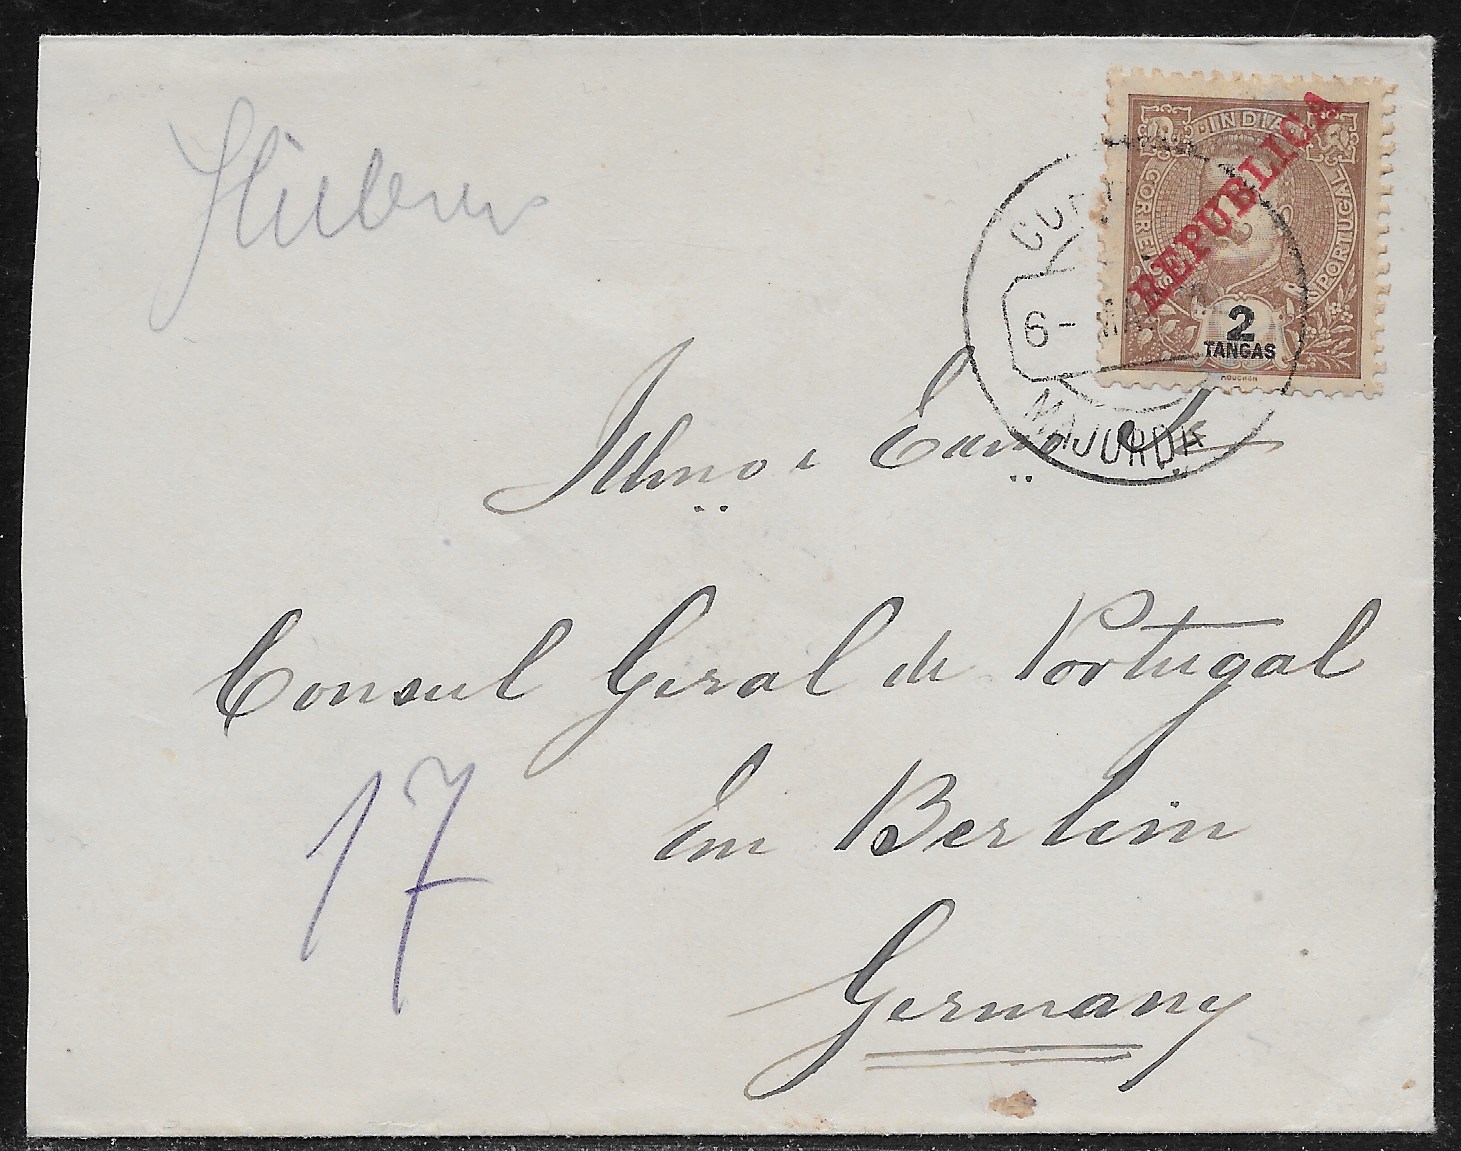 INDIA
CORREIOS
PORTUGAL
REPUBLICA
2
TANGAS
MOUCHON
6- MAR
MAJORDA
Illmo e Exmo Sr
Consul Geral de Portugal
Em Berlim
Germany
17